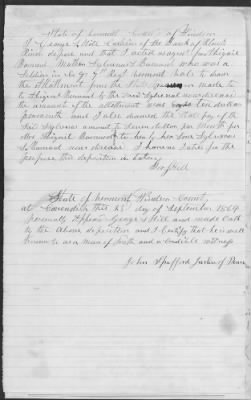 State of Vermont County of Windsor
I George S Hill Cashier of the Bank of Black
River depose and that I acted as agent for Abigail
Barnard Mother Sylvanus S Barnard who was a
Soldier in Co G 7 Regt Vermont Vols to have
the Allotment from the State made to
to Abigail Barnard by the said Sylvanus now deceased
the amount of the allotment was Seven dollars
per month and I also drawed the State pay of the
said Sylvanus amount to Seven dollars per Month for
Mrs Abigail Barnard to her by her Sylvanus
S Barnard now deceased I have no Interest for the
purpose this deposition is taken
Geo S Hill
State of Vermont Windsor County
at Cavendish this 23 day of September 1864
personally Appeared George S Hill and made Oath
to the Above deposition and I Certify that he is well
known to me a man of truth and a credible witness
John Spafford Justice of Peace